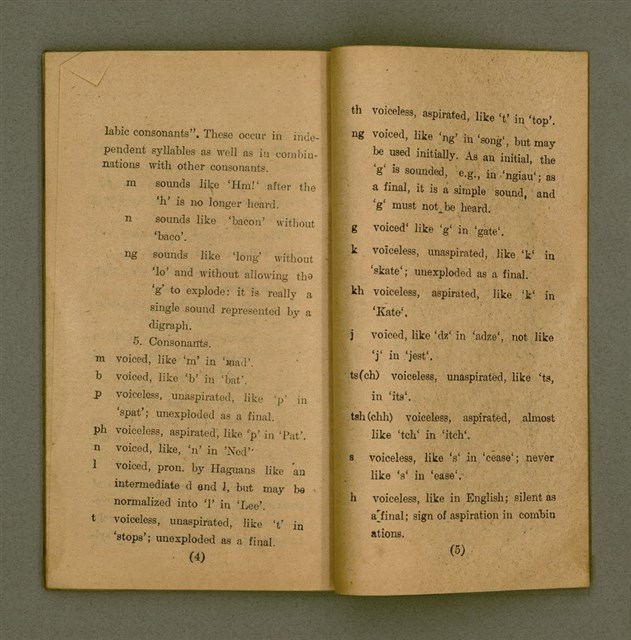 labic consonants”. These occur in inde-
pendent syllables as well as in combin-
nations with other consonants.
m sounds like ‘Hm!‘ after the
‘h’ is no longer heard.
n sounds like ‘bacon’ without
‘baco’.
ng sounds like ‘long’ without
‘lo’ and without allowing the
‘g’ to explode: it is really a
single sound represented by a
digraph.
5. Consonants.
m voiced, like ‘m’ in ‘mad’.
b voiced, like ‘b’ in ‘bat’.
p voiceless, unaspirated, like ‘p’ in
‘spat’; unexploded as a final.
ph voiceless, aspirated, like ‘p’ in ‘Pat’.
n voiced, like, ‘n’ in ‘Ned’·
l voiced, pron. by Haguans like an
intermediate d and l, but may be
normalized into ‘l’ in ‘Lee’.
t voiceless, unaspirated, like ‘t’ in
‘stops’; unexploded as a final.
(4)
th voiceless, aspirated, like ‘t’ in ‘top’.
ng voiced, like ‘ng’ in ‘song’, but may
be used initially. As an initial, the
‘g’ is sounded, e.g., in ‘ngiau’; as
a final, it is a simple sound, and
‘g’ must not be heard.
g voiced‘ like ‘g’ in ‘gate’.
k voiceless, unaspirated, like ‘k‘ in
‘skate‘; unexploded as a final.
kh voiceless, aspirated, like ‘k‘ in
‘Kate‘.
j voiced, like ‘dz‘ in ‘adze‘, not like
‘j‘ in ‘jest‘.
ts(ch) voiceless, unaspirated, like ‘ts,
in ‘its‘.
tsh(chh) voiceless, aspirated, almost
like ‘tch‘ in ‘itch‘.
s voiceless, like ‘s‘ in ‘cease‘; never
like ‘s‘ in ‘ease‘.
h voiceless, like in English; silent as
a final; sign of aspiration in combin
ations.
(5)